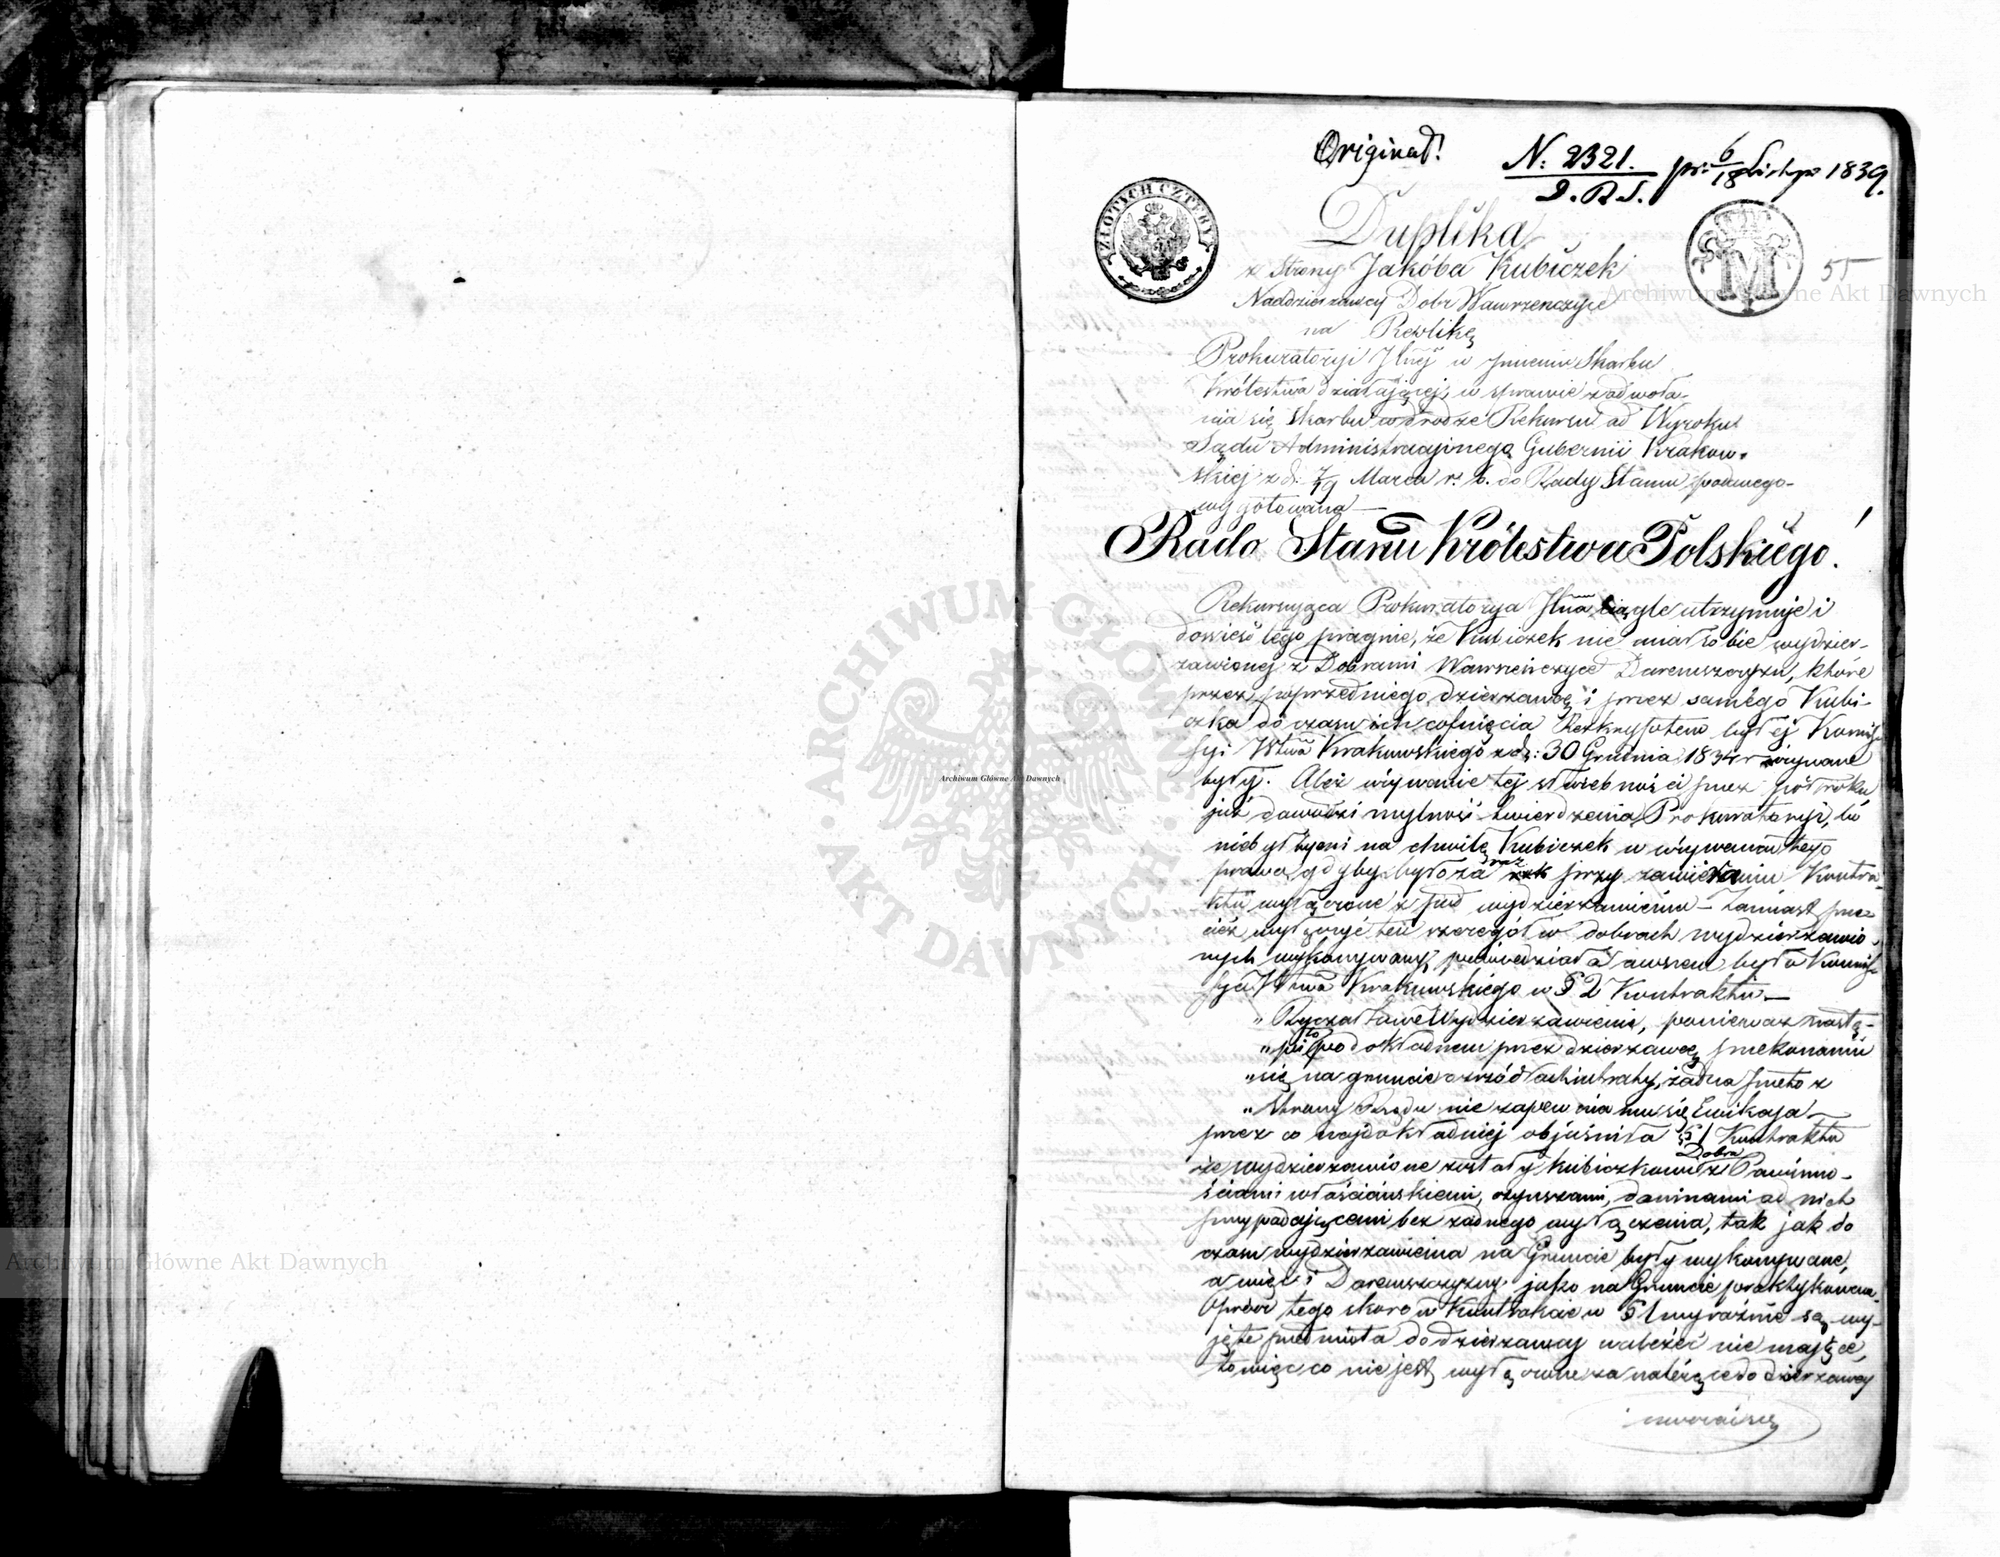 Original!
N: 2321. pr: 6/18 Listop 1839.
D.R.S.
ZŁOTYCH CZTERY
M
55
Duplika
z strony Jakóba Kubiczek
Naddzierżawcy Dóbr Wawrzenczyce
na Replikę
Prokuratoryi Jlnéj w jmieniu Skarbu
Królestwa działającej, w sprawie zadwoła-
nia się Skarbu w drodze Rekursu od Wyroku
Sądu Administracyjnego Gubernii Krakow-
skiej z d. 7/19 Marca r. b. do Rady Stanu
wygotowana —
Rado Stanu Królestwa Polskiego!
Rekurująca Prokuratorya Jlna ciągle utrzymuje i
dowieść tego pragnie, że Kubiczek nie miał sobie wydzier-
żawionej z Dobrami Wawrzeńczyce Daremszczyzn, które
przez poprzedniego dzierżawcę i przez samego Kubi-
czka do czasu ich cofnięcia Reskryptem byłej Kommis-
syi Wtwa Krakowskiego z d: 30 Grudnia 1834 r używane
były. Ależ używanie tej służebności przez półroku
już dowodzi mylność twierdzenia Prokuratoryi, bo
niebyłbyeni na chwilę Kubiczek w używaniu tego
prawa, gdyby było zaraz przy zawieraniu Kontra-
ktu wyłączone z pod wydzierżawienia — Zamiast prze-
cież wyłączyć ten szczegół w dobrach wydzierżawio-
nych wykonywany, powiedziała owszem była Kommis-
sya Wtwa Krakowskiego w § 2 Kontraktu —
„Ryczałtowe Wydzierżawienie, ponieważ nastą-
„piło po dokładnem przez dzierżawcę przekonaniu
„się na gruncie o źródłach intraty, żadna przeto z
„strony Rządu nie zapewnia mu się Ewikcya —
przez co najdokładniej objaśniła § 1 Kontraktu
że wydzierżawione zostały Kubiczkowi Dobra z Powinno-
ściami włościańskiemi, czynszami, daninami od nich
przypadającemi bez żadnego wyłączenia, tak jak do
czasu wydzierżawienia na Gruncie były wykonywane,
a więc i Daremszczyzny jako na Gruncie praktykowane.
Oprócz tego skoro w Kontrakcie w § 1 wyraźnie są wy-
jęte przedmiota do dzierżawcy należeć nie mające,
to więc co nie jest wyłączone za należące do dzierżawcy
Archiwum Główne Akt Dawnych
ARCHIWUM GŁÓWNE AKT DAWNYCH
Archiwum Główne Akt Dawnych
Archiwum Główne Akt Dawnych